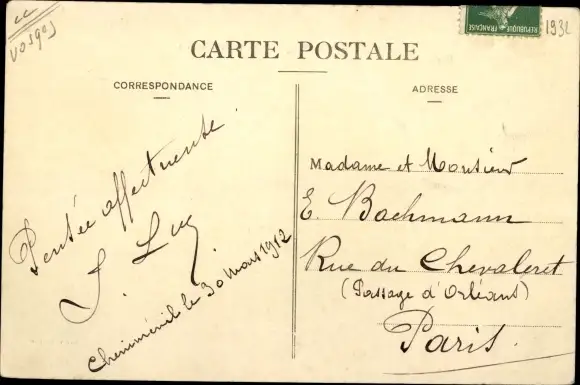 Vosges
REPUBLIQUE FRANÇAISE
1932
CARTE POSTALE
CORRESPONDANCE
Pensée affectueuse
J. Luc
Cheniménil le 30 Mars 1912
ADRESSE
Madame et Monsieur
E. Bachmann
Rue du Chevaleret
(Passage d'Orléans)
Paris.